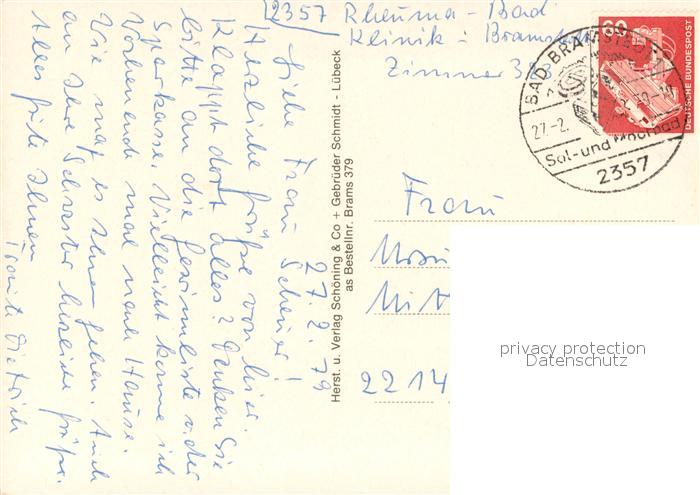 2357 Rheuma-Bad
Klinik i Bramstedt
Zimmer 383
60
DEUTSCHE BUNDESPOST
BAD BRAMSTEDT 1
27.-2.
Sol- und Moorbad
2357
27.2.79
Liebe Frau Scheuer!
Herzliche Grüße von hier.
Klappt dort alles? Denken Sie
bitte an die Gewinnliste v. der
Sparkasse. Vielleicht komme ich
Wochenende mal nach Hause.
Wie mag es Ihnen gehen. Auch
an Ihre Schwester herzliche Grüße.
Alles Gute Ihnen
Dietrich
Herst. u. Verlag Schöning & Co + Gebrüder Schmidt - Lübeck
as Bestellnr. Brams 379
Frau
2214
privacy protection
Datenschutz